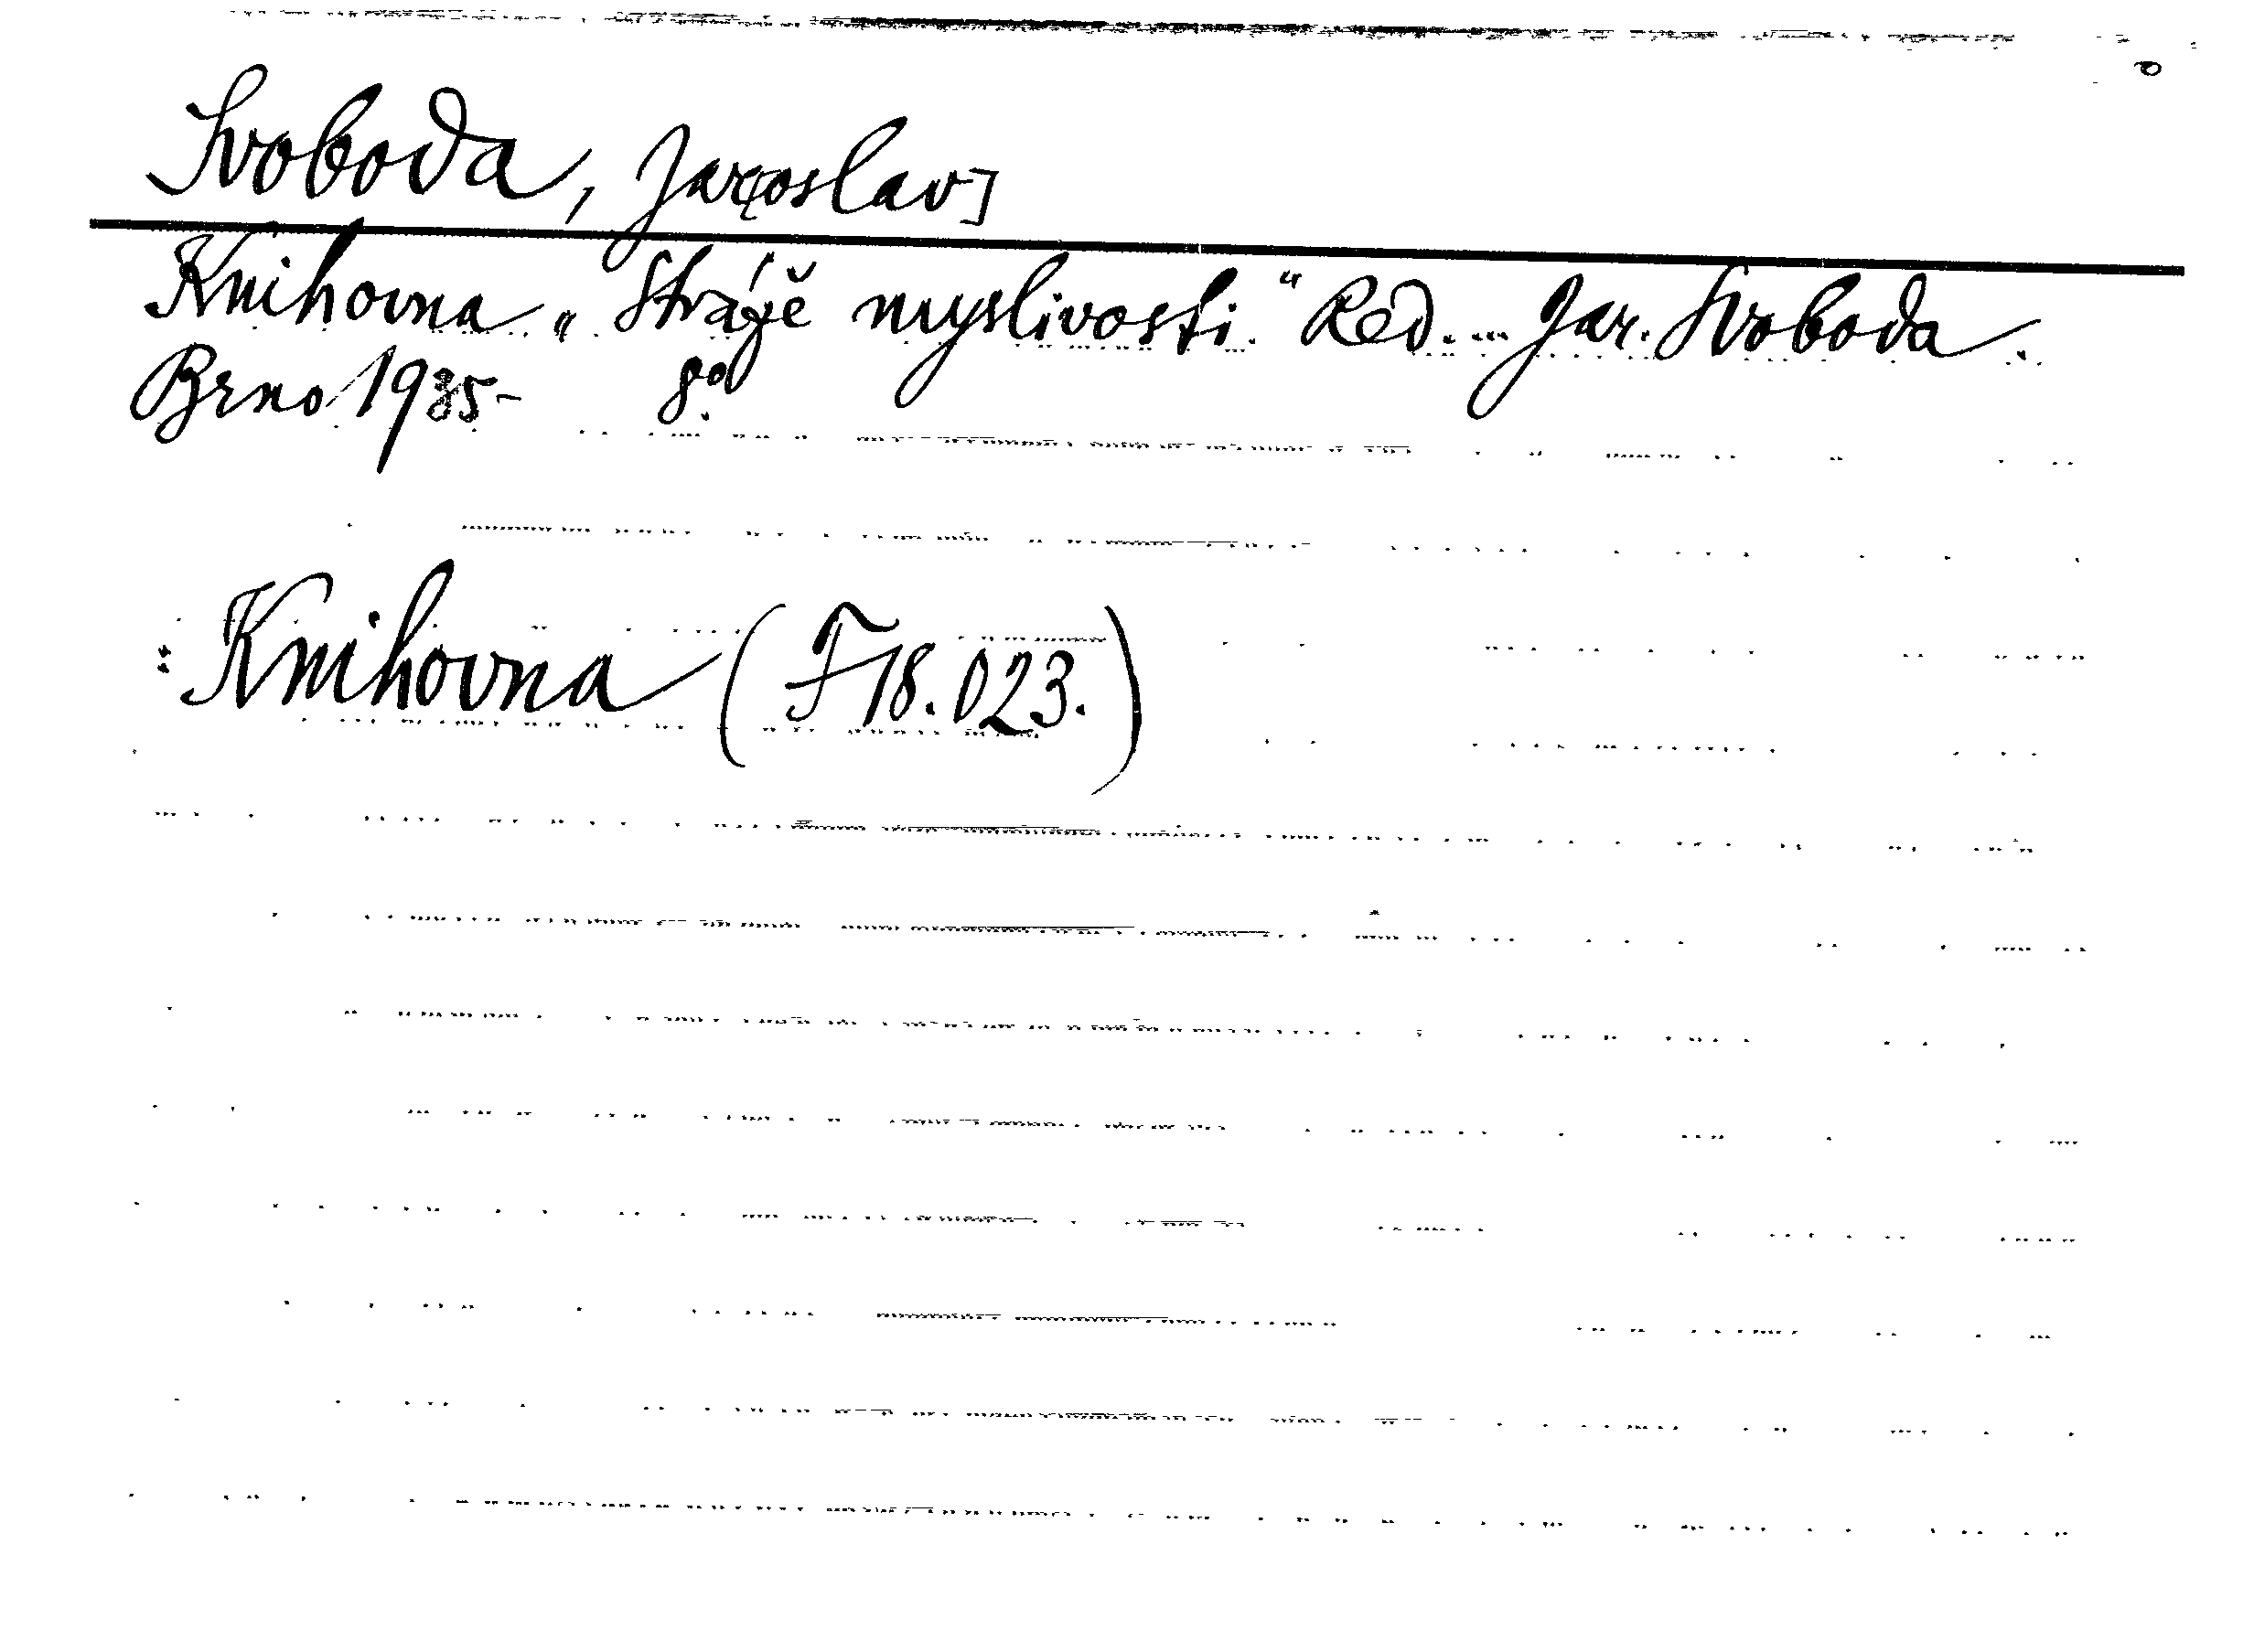 Svoboda, Jar[oslav]
Knihovna „Stráže myslivosti." Red. ... Jar. Svoboda.
Brno 1935- 8°.
: Knihovna (F18.023.)